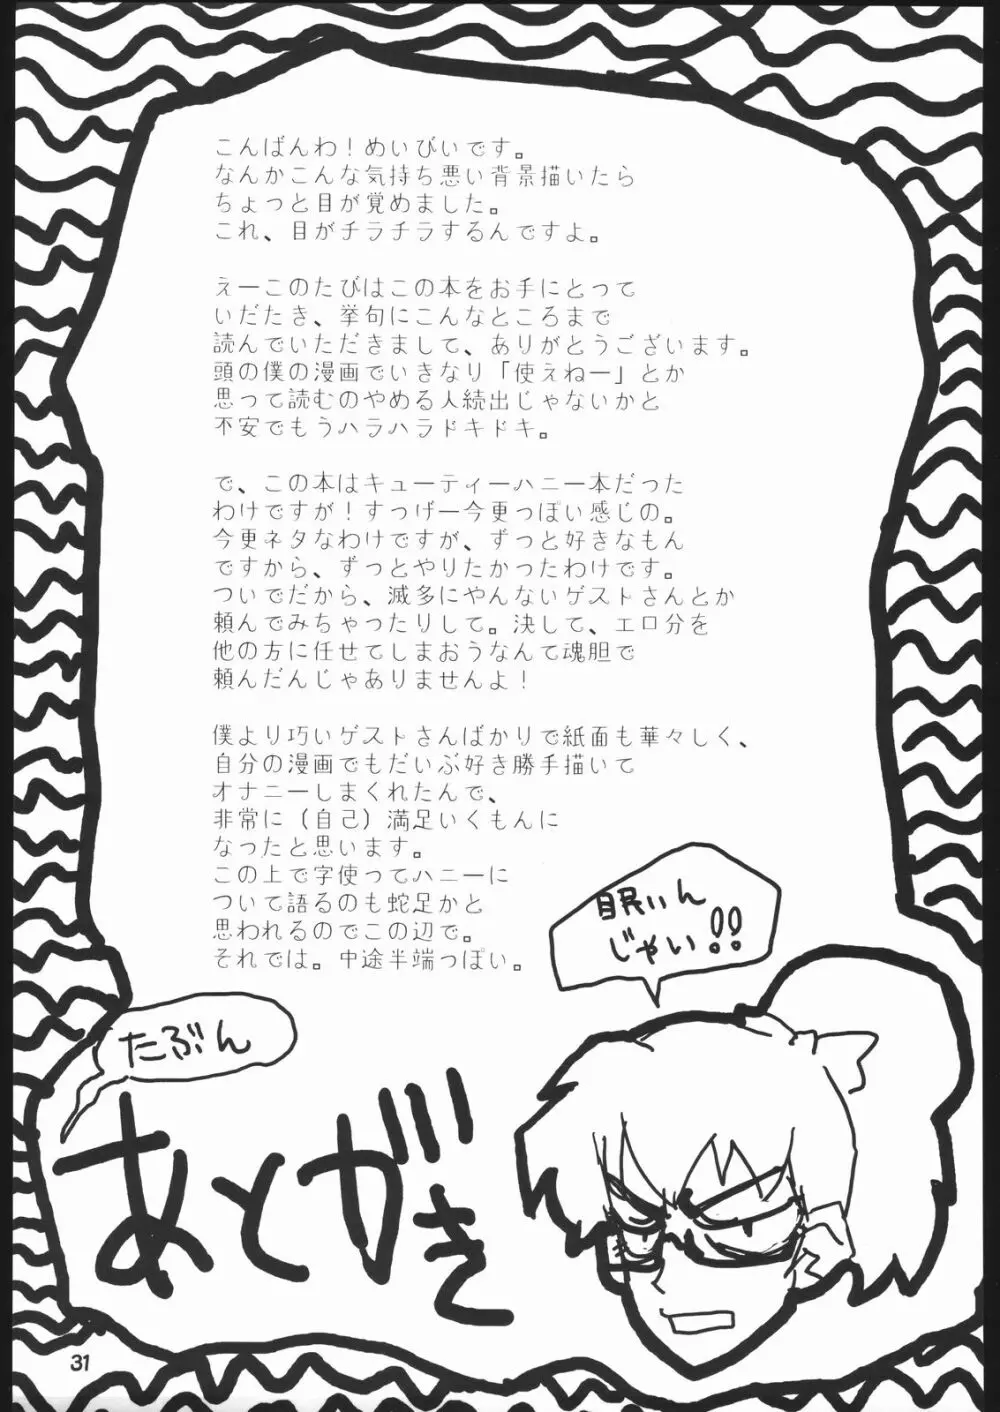 こんばんわ！めいびいです。
なんかこんな気持ち悪い背景描いたら
ちょっと目が覚めました。
これ、目がチラチラするんですよ。
えーこのたびはこの本をお手にとって
いだたき、挙句にこんなところまで
読んでいただきまして、ありがとうございます。
頭の僕の漫画でいきなり「使えねー」とか
思って読むのやめる人続出じゃないかと
不安でもうハラハラドキドキ。
で、この本はキューティーハニー本だった
わけですが！すっげー今更っぽい感じの。
今更ネタなわけですが、ずっと好きなもん
ですから、ずっとやりたかったわけです。
ついでだから、滅多にやんないゲストさんとか
頼んでみちゃったりして。決して、エロ分を
他の方に任せてしまおうなんて魂胆で
頼んだんじゃありませんよ！
僕より巧いゲストさんばかりで紙面も華々しく、
自分の漫画でもだいぶ好き勝手描いて
オナニーしまくれたんで、
非常に（自己）満足いくもんに
なったと思います。
この上で字使ってハニーに
ついて語るのも蛇足かと
思われるのでこの辺で。
それでは。中途半端っぽい。
眠いん
じゃい!!
たぶん
あとがき
31